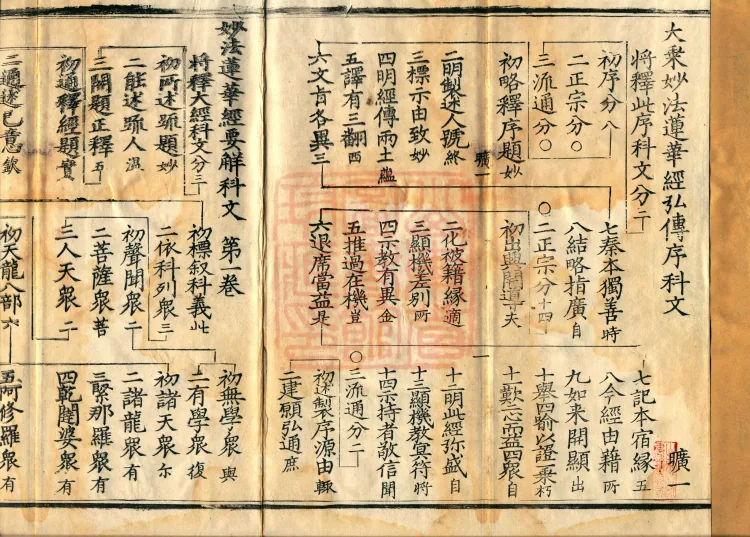 大乘妙法蓮華經弘傳序科文
曠一
將釋此序科文分二
初序分八
二正宗分〇
三流通分〇
初略釋序題妙
曠一
二明製述人號終
三標示由致妙
四明經傳兩土蘊
五譯有三翻西
六文旨各異三
七秦本獨善時
八結略指廣自
〇二正宗分十四
初出興開導夫
二化被藉緣適
三顯機差別所
四示教有異金
五推過在機豈
六退席當益是
七記本宿緣五
八今經由藉所
九如来開顯出
十舉四喻以證二乗朽
十一歎一心而益四衆自
十二明此經弥盛自
十三顯機教冥符將
十四示持者敬信聞
〇三流通分二
初述製序源由輙
二建願弘通庶
妙法蓮華經要解科文 第一卷
將釋大經科文分二
初所述䟽題妙
二能述䟽人温
三開題正釋五
初通釋經題實
二通述已意欽
初標叙科義此
二依科列衆三
初聲聞衆二
二菩薩衆菩
三人天衆二
初天龍八部六
初無學衆與
二有學衆復
初諸天衆尔
二諸龍衆有
三緊那羅衆有
四乾闥婆衆有
五阿修羅衆有